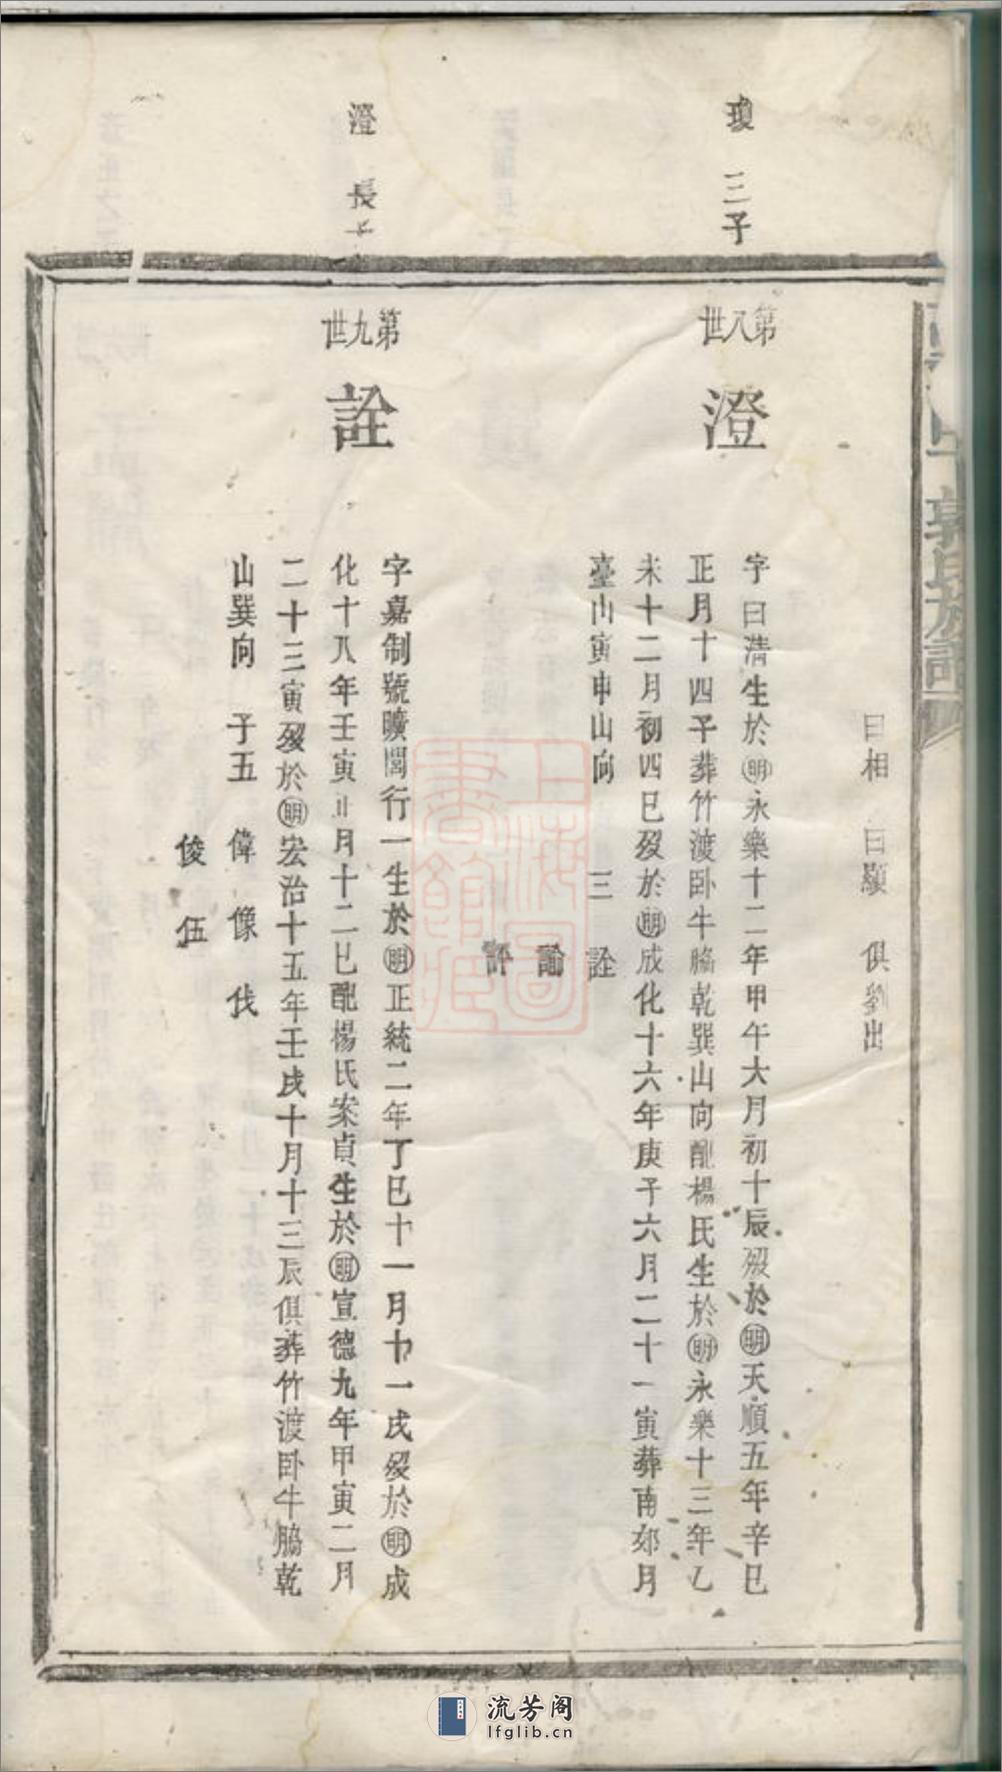 瓊三子
曰相 曰顯 俱劉出
第八世
澄
字曰清生於明永樂十二年甲午大月初十辰歿於明天順五年辛巳
正月十四子葬竹渡卧牛脇乾巽山向配楊氏生於明永樂十三年乙
未十二月初四巳歿於明成化十六年庚子六月二十一寅葬南郊月
臺山寅申山向 三 詮
諭
評
澄長子
第九世
詮
字嘉制號曠閭行一生於明正統二年丁巳十一月十一戌歿於明成
化十八年壬寅 月十二巳配楊氏案貞生於明宣德九年甲寅二月
二十三寅歿於明宏治十五年壬戌十月十三辰俱葬竹渡卧牛脇乾
山巽向 子五 偉 像 伐
俊 伍
郭氏族譜
上海圖書館藏
流芳阁
lfglib.cn